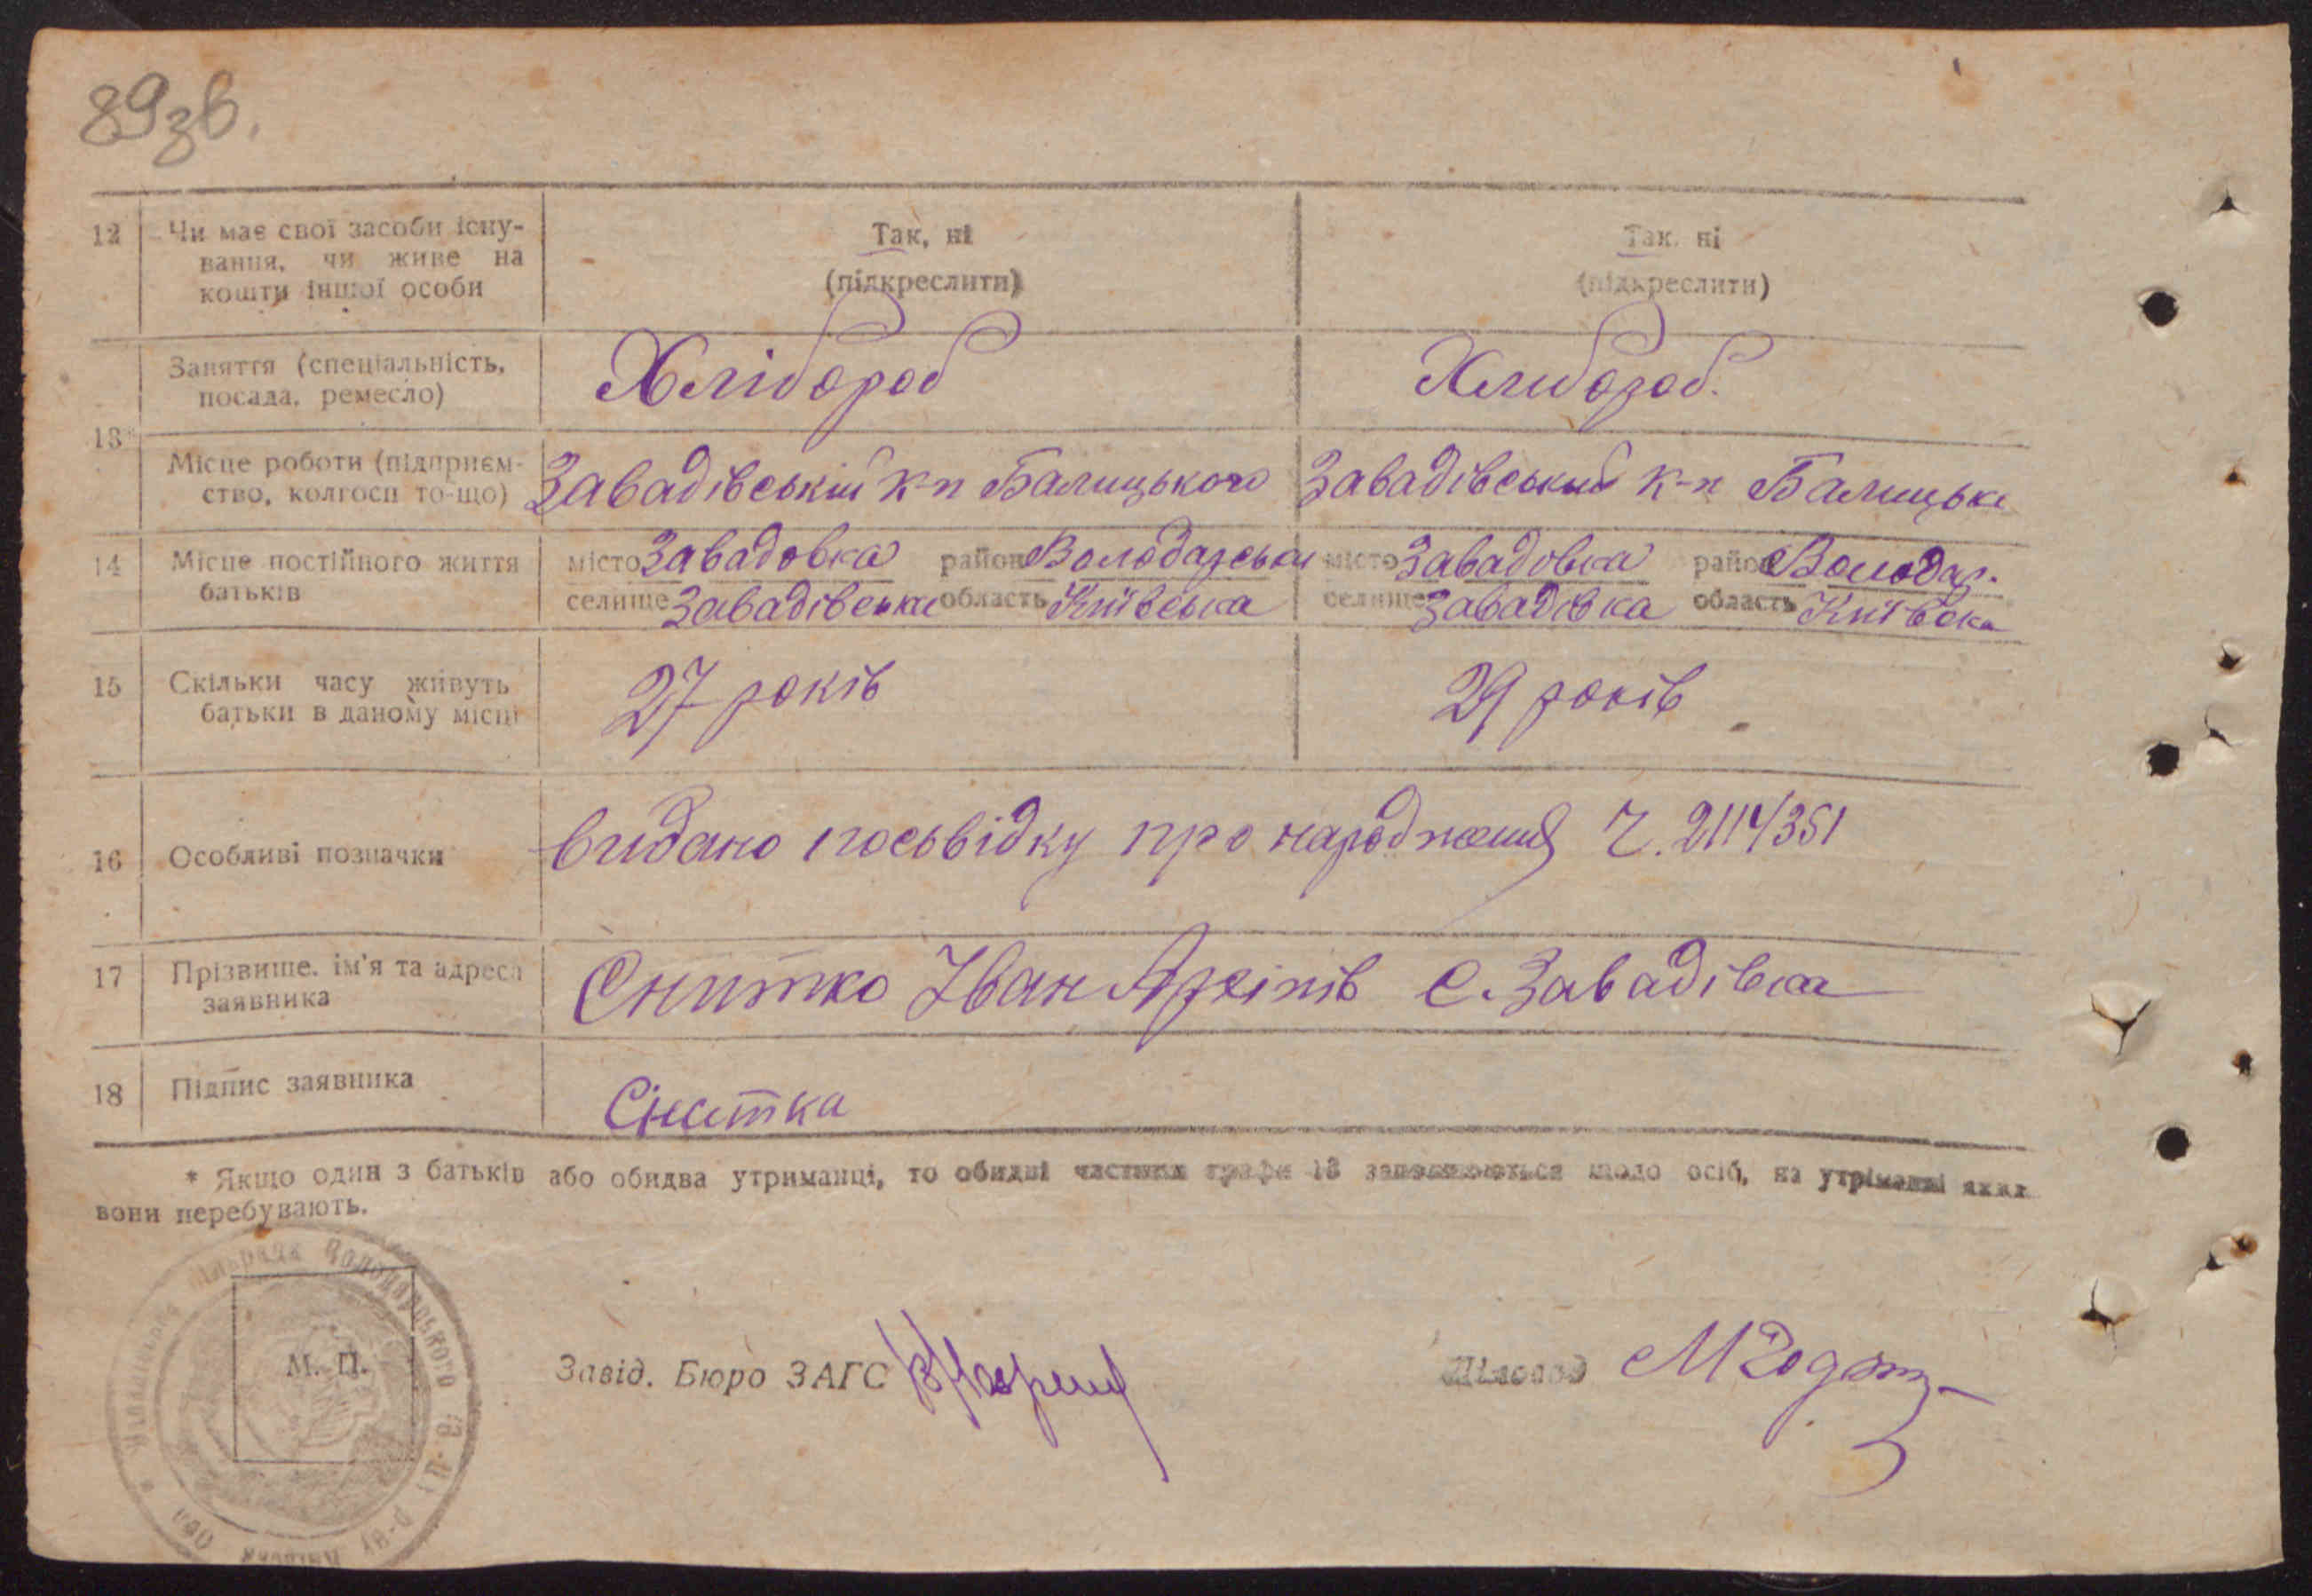 89зв.
12 Чи має свої засоби існу- Так, ні Так, ні
вання, чи живе на (підкреслити) (підкреслити)
кошти іншої особи
13* Заняття (спеціальність, Хлібороб Хлибороб.
посада, ремесло)
Місце роботи (підприєм- Завадівський к-п Балицького Завадівський к-п Балицьк
ство, колгосп то-що)
14 Місце постійного життя місто Завадовка район Володарськи місто Завадовка район Володар.
батьків селище Завадівськи область Київська селище Завадівка область Київска
15 Скільки часу живуть 27 років 29 років
батьки в даному місці
16 Особливі позначки видано посьвідку про народження Ч. 2114/351
17 Прізвище. ім'я та адреса Снитко Іван Архіпів с. Завадівка
заявника
18 Підпис заявника Снитка
* Якщо один з батьків або обидва утриманці, то обидві частини графи 13 заповнюються щодо осіб, на утріманні яких
вони перебувають.
М. П.
Завід. Бюро ЗАГС Діловод
Володарського р-ну